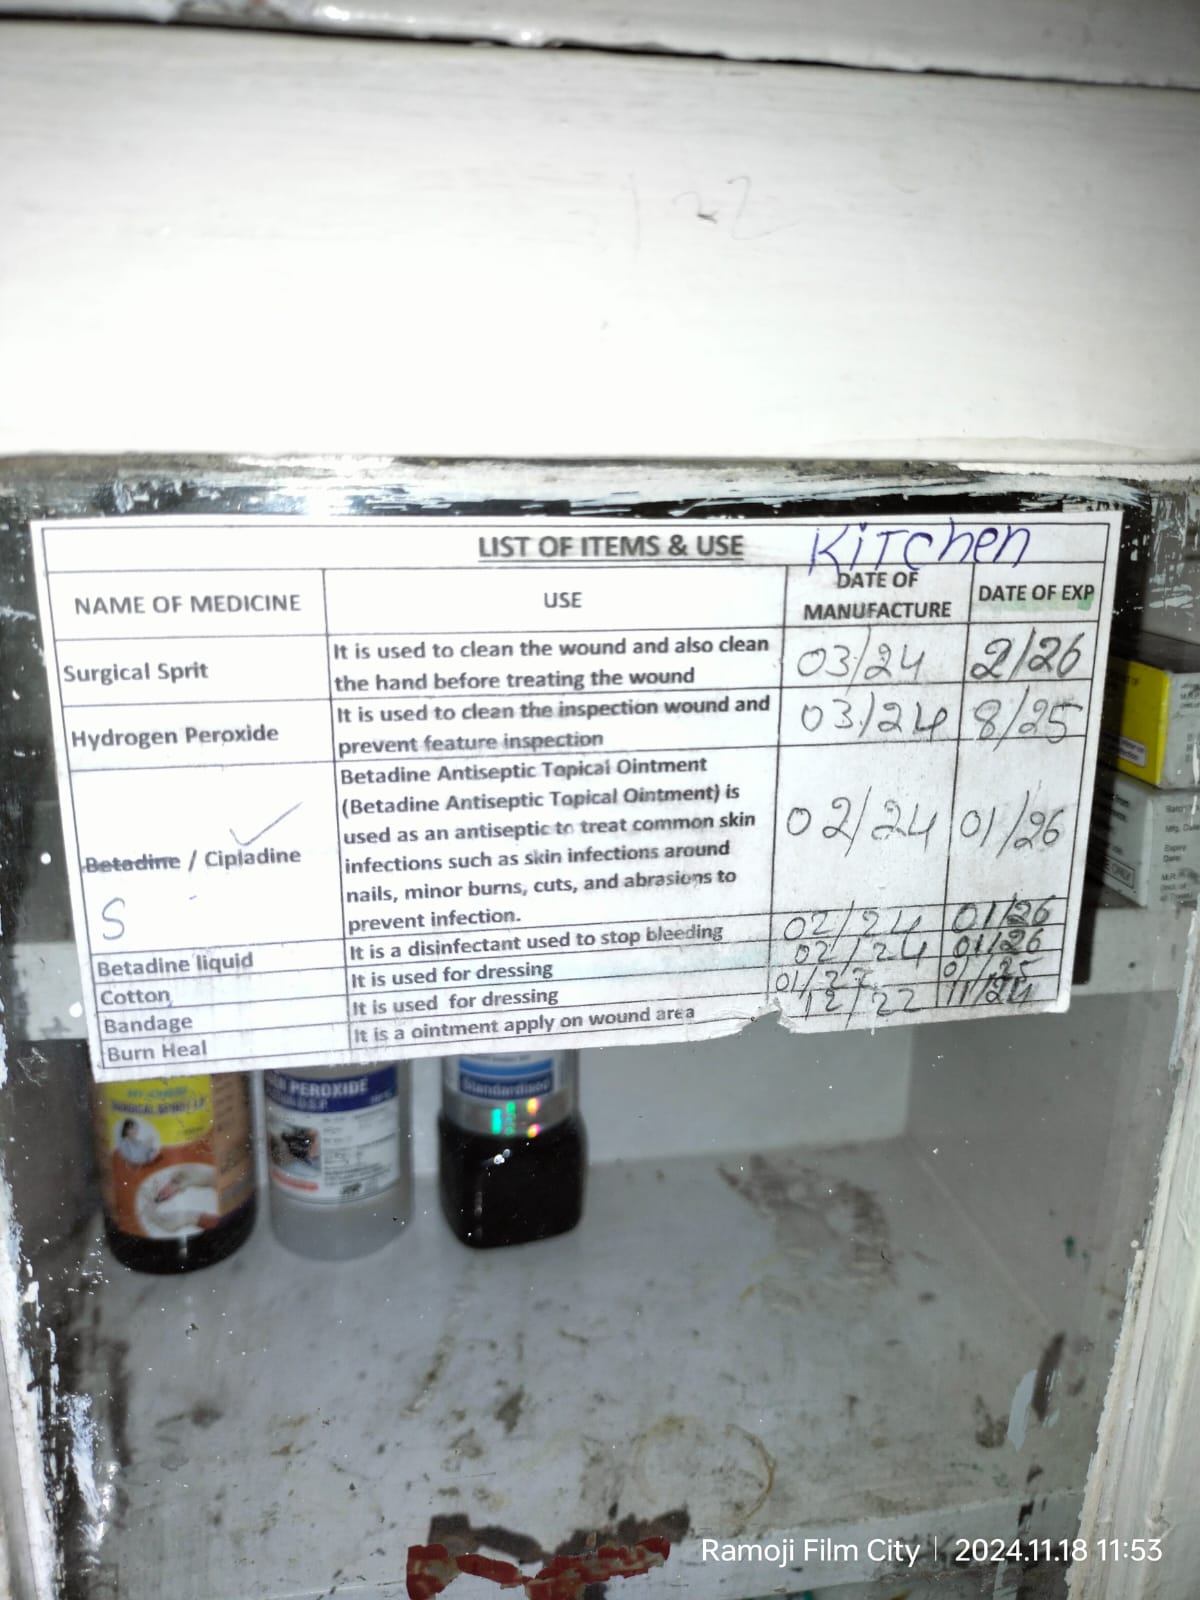 LIST OF ITEMS & USE Kitchen
NAME OF MEDICINE USE DATE OF MANUFACTURE DATE OF EXP
Surgical Sprit
It is used to clean the wound and also clean
the hand before treating the wound
03/24 2/26
Hydrogen Peroxide
It is used to clean the inspection wound and
prevent feature inspection
03/24 8/25
Betadine / Cipladine
S
Betadine Antiseptic Topical Ointment
(Betadine Antiseptic Topical Ointment) is
used as an antiseptic to treat common skin
infections such as skin infections around
nails, minor burns, cuts, and abrasions to
prevent infection.
02/24 01/26
Betadine liquid It is a disinfectant used to stop bleeding 02/24 01/26
Cotton It is used for dressing 02/24 01/26
Bandage It is used for dressing 01/22 01/25
Burn Heal It is a ointment apply on wound area 12/22 11/24
PEROXIDE
Standardised
Ramoji Film City | 2024.11.18 11:53